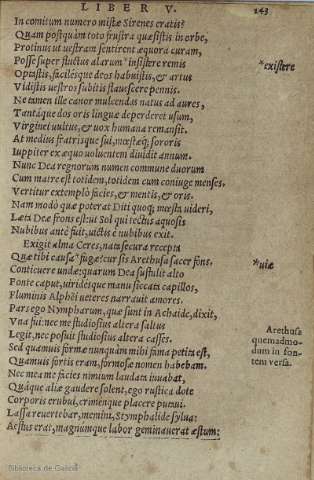 LIBER V. 243
In comitum numero mistæ Sirenes eratis?
Quam postquàm toto frustra quæsistis in orbe,
Protinus ut uestram sentirent æquora curam,
Posse super fluctus alarum insistere remis *existere
Optastis, facilesque deos habuistis, & artus
Vidistis uestros subitis flauescere pennis.
Ne tamen ille canor mulcendas natus ad aures,
Tantáque dos oris linguæ deperderet usum,
Virginei uultus, & uox humana remansit.
At medius fratrisque sui, mœstæq; sororis
Iuppiter ex æquo uoluentem diuidit annum.
Nunc Dea regnorum numen commune duorum
Cum matre est totidem, totidem cum coniuge menses.
Vertitur extemplò facies, & mentis, & oris.
Nam modò quæ poterat Diti quoq; mœsta uideri,
Læta Deæ frons est: ut Sol qui tectus aquosis
Nubibus antè fuit, uictis è nubibus exit.
Exigit alma Ceres, nata secura recepta
Quæ tibi causa fugæ: cur sis Arethusa sacer fons. *uiæ
Conticuere undæ: quarum Dea sustulit alto
Fonte caput, uiridesque manu siccata capillos,
Fluminis Alphëi ueteres narrauit amores.
Pars ego Nympharum, quæ sunt in Achaide, dixit,
Vna fui: nec me studiosius altera saltus
Legit, nec posuit studiosius altera casses.
Sed quamuis formæ nunquàm mihi fama petita est,
Quamuis fortis eram, formosæ nomen habebam.
Nec mea me facies nimium laudata iuuabat,
Quáque aliæ gaudere solent, ego rustica dote
Corporis erubui, crimenque placere putaui.
Lassa reuertebar, memini, Stymphalide sylua:
Aestus erat, magnumque labor geminauerat æstum:
Arethusa
quemadmo-
dum in fon-
tem versa.
Biblioteca de Galicia